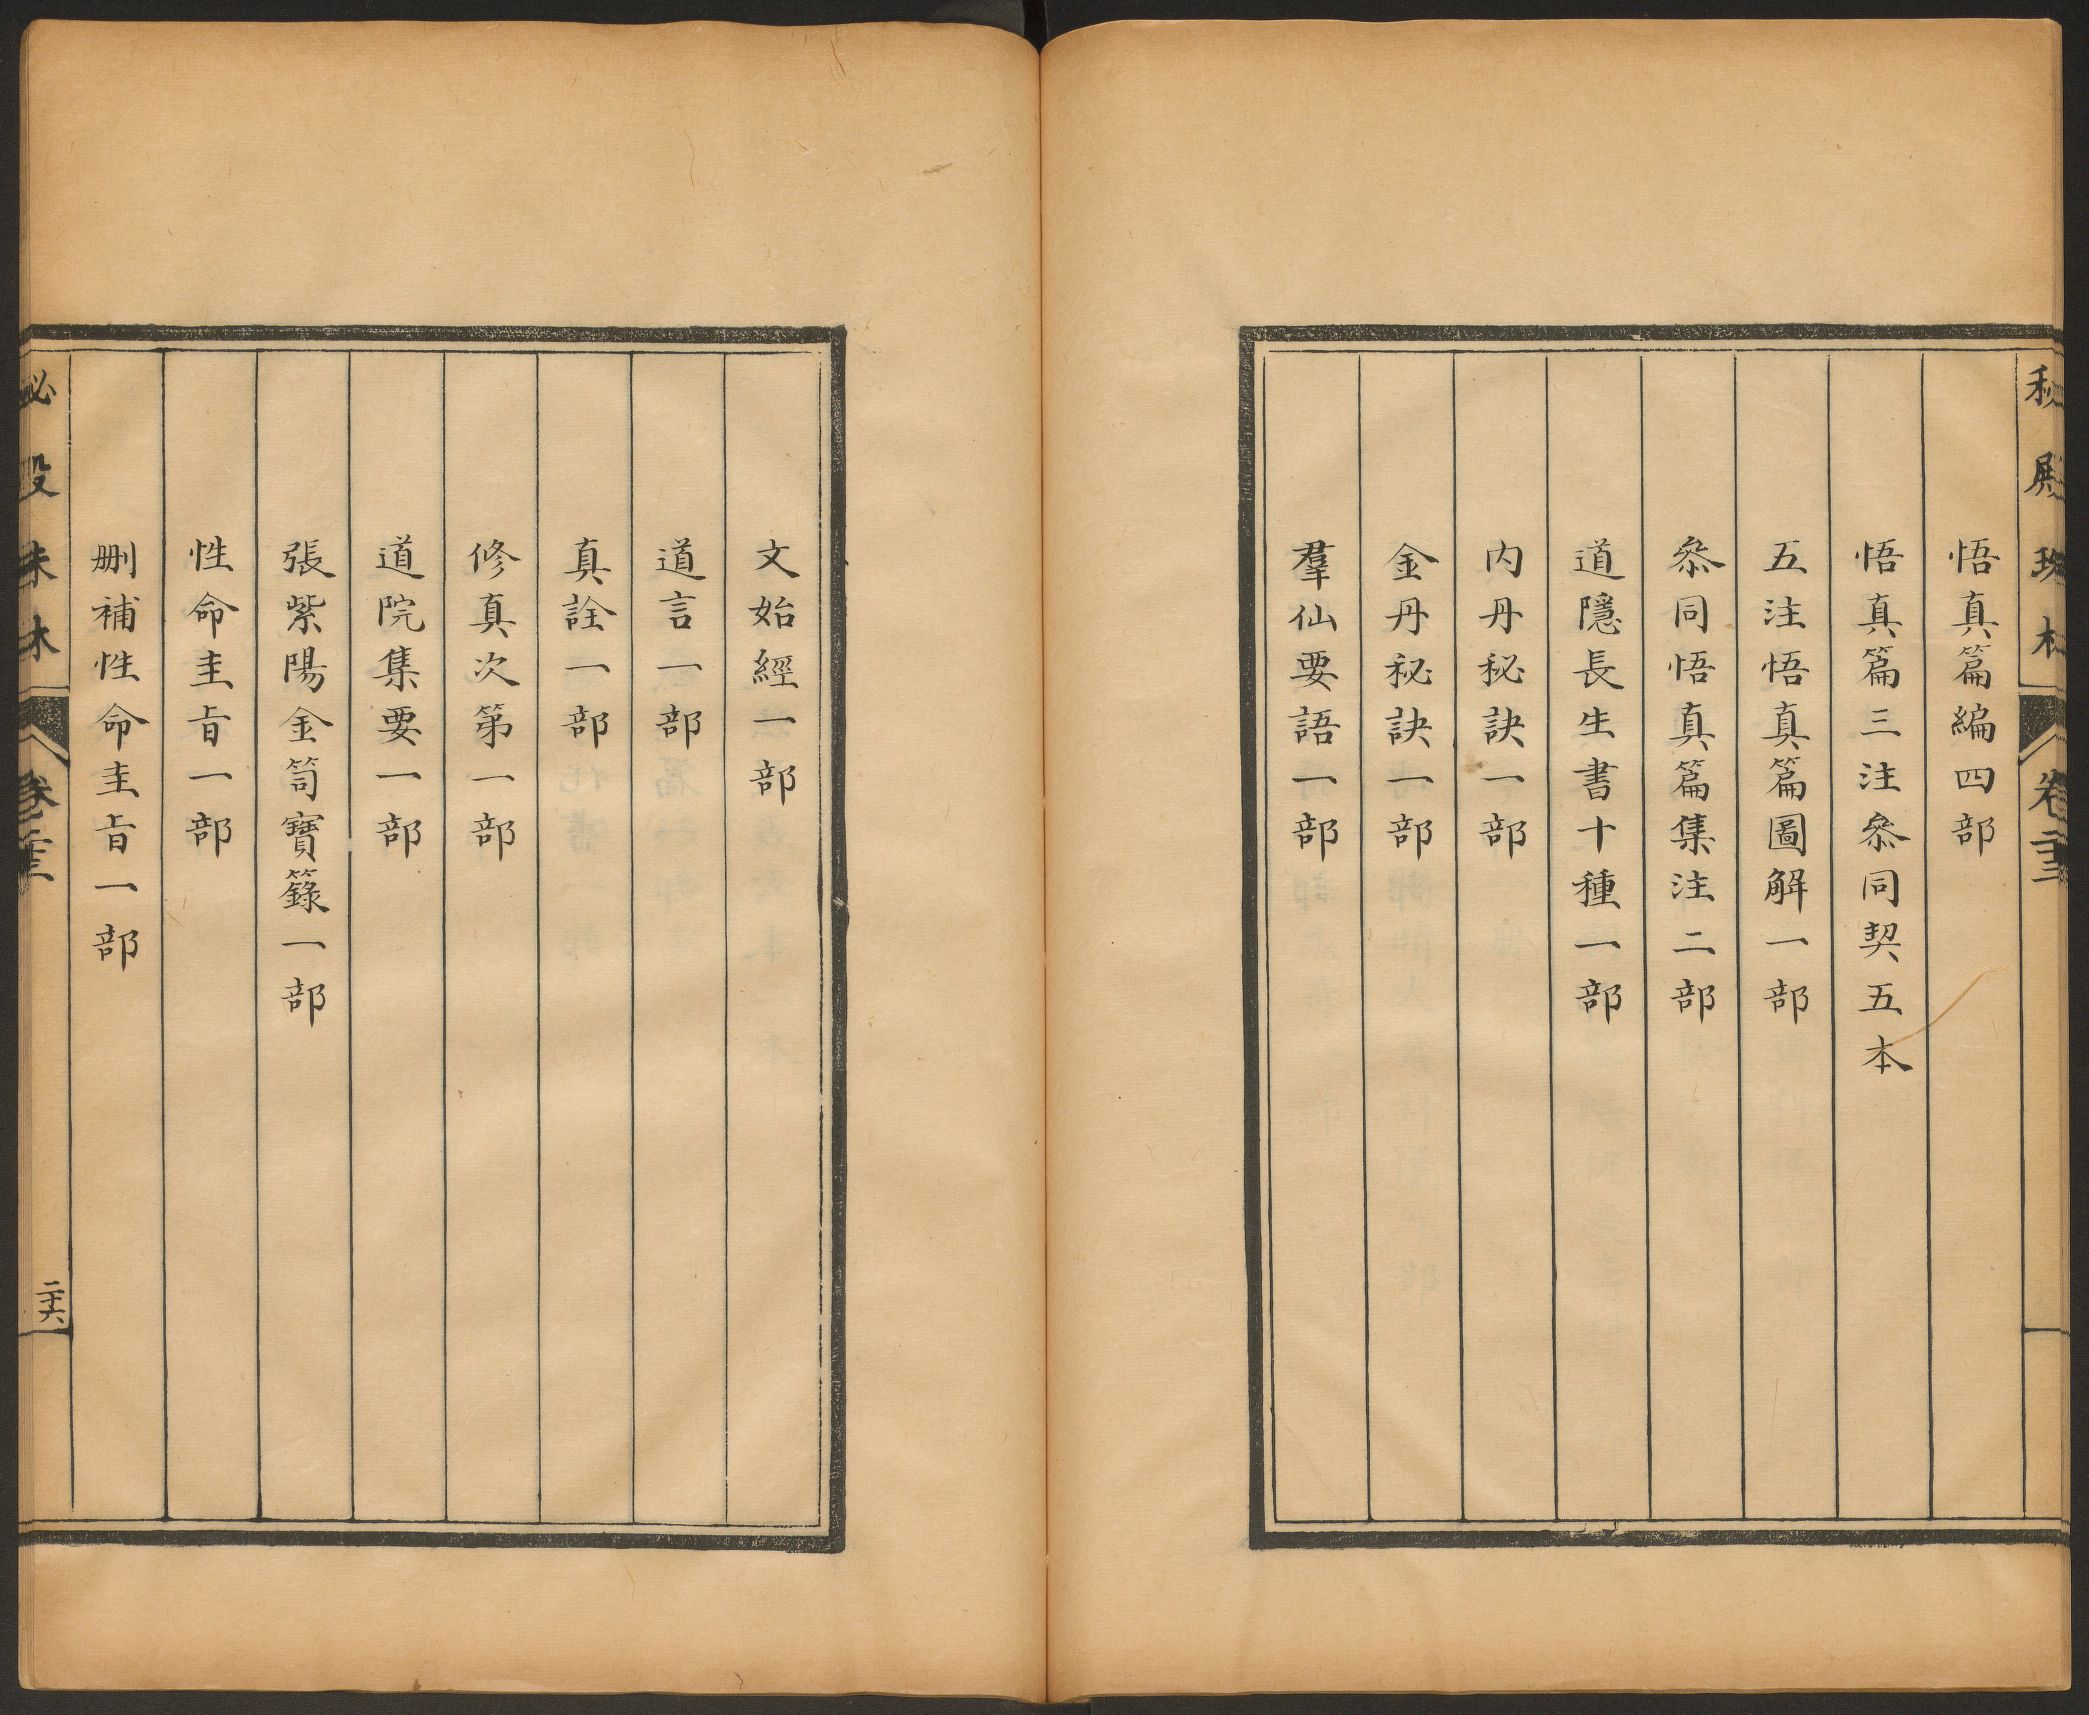 秘殿珠林
卷二十三
悟真篇編四部
悟真篇三注叅同契五本
五注悟真篇圖解一部
叅同悟真篇集注二部
道隱長生書十種一部
内丹秘訣一部
金丹秘訣一部
羣仙要語一部
文始經一部
道言一部
真詮一部
修真次第一部
道院集要一部
張紫陽金笥寶籙一部
性命圭旨一部
刪補性命圭旨一部
秘殿珠林
卷二十三
二十六